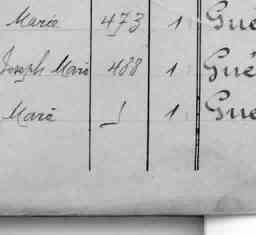 Marie 473 1 Gué
Joseph Marie 488 1 Gué
Marie 1 1 Gue